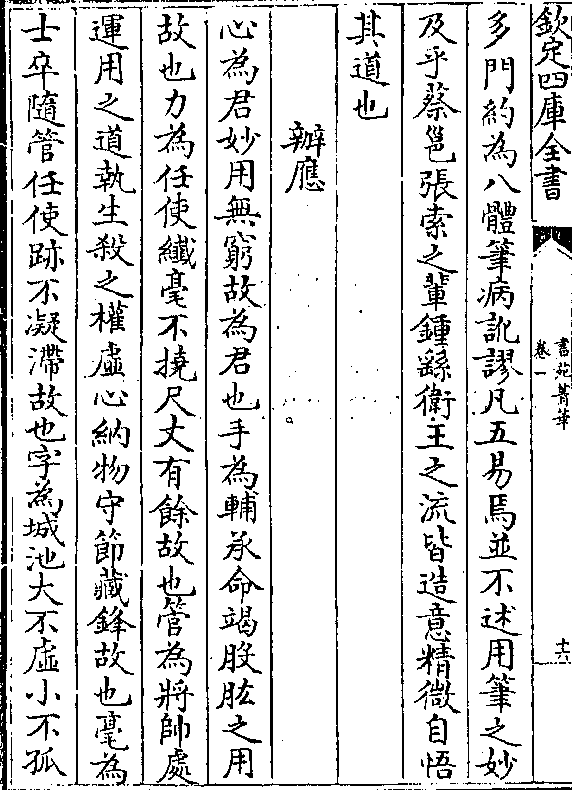 欽定四庫全書
書苑菁華
卷一
十六
多門約為八體筆病訛謬凡五易焉並不述用筆之妙
及乎蔡邕張索之輩鍾繇衛王之流皆造意精微自悟
其道也
辨應
心為君妙用無窮故為君也手為輔承命竭股肱之用
故也力為任使纖毫不撓尺丈有餘故也管為將帥處
運用之道執生殺之權虛心納物守節藏鋒故也毫為
士卒隨管任使跡不凝滯故也字為城池大不虛小不孤